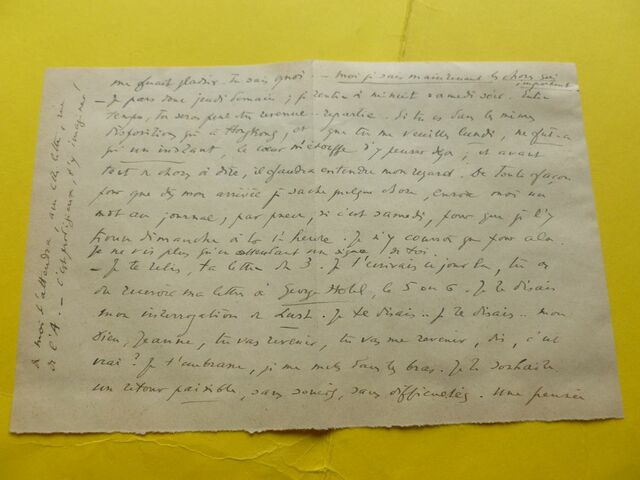 me ferait plaisir. Tu sais quoi. — Moi je sais maintenant les choses qui
importent
— Je pars donc jeudi demain ; je rentre à minuit samedi soir. Entre
temps, tu seras peut être revenue repartie. Si tu es dans les mêmes
dispositions qu'à Hongkong, et que tu me veuilles lundi, ne fut-ce
qu'un instant, le cœur m'étouffe d'y penser déjà, et avant
tout à dire, il faudra entendre mon regard. De toute façon
pour que dès mon arrivée je sache quelque chose, envoie moi un
mot au journal, par pneu, si c'est samedi, pour que je l'y
trouve dimanche à la 1ère heure. Je n'y courrai que pour cela.
Je ne vis plus qu'en attendant un signe de toi.
— Je te relis, ta lettre du 3. Je t'écrivais ce jour là, tu as
du recevoir ma lettre à George Hotel, le 5 ou 6. Je te disais
mon interrogation de Je te disais.. Je te disais.. mon
Dieu, Jeanne, tu vas revenir, tu vas me revenir, dis, c'est
vrai ? Je t'embrasse, je me mets dans tes bras. Je te souhaite
un retour paisible, sans soucis, sans difficultés. Une pensée
de moi t'attendra, avec cette lettre,
de l'A. —